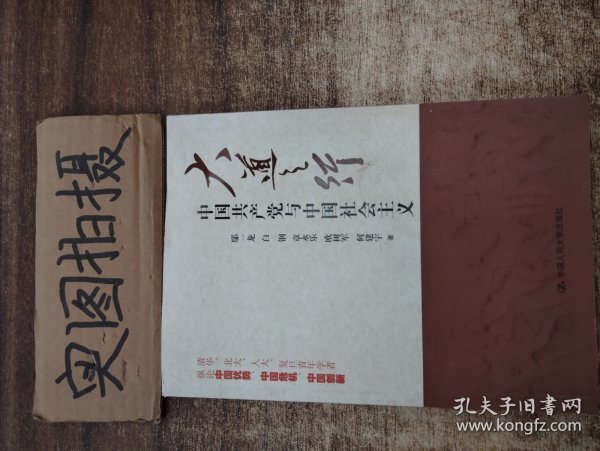 奥图拍摄
大道之行
中国共产党与中国社会主义
鄢一龙 白钢 章永乐 欧树军 何建宇 著
清华、北大、人大、复旦青年学者
纵论中国优势、中国危机、中国创新
中国人民大学出版社
孔夫子旧书网
www.kongfz.com